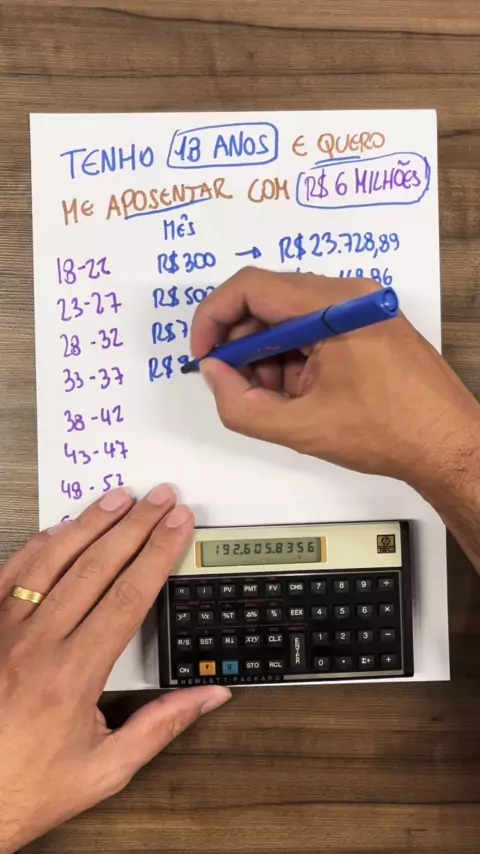 TENHO 18 ANOS E QUERO
ME APOSENTAR COM R$ 6 MILHÕES
MÊS
18-22 R$300 → R$23.728,89
23-27
28-32
33-37
38-42
43-47
48-52
192,605.8356
hp
n i PV PMT FV CHS 7 8 9 ÷
%T Δ% % EEX 4 5 6 ×
R/S SST R↓ x≷y CLX ENTER 1 2 3 −
ON f g STO RCL 0 . Σ+ +
HEWLETT·PACKARD